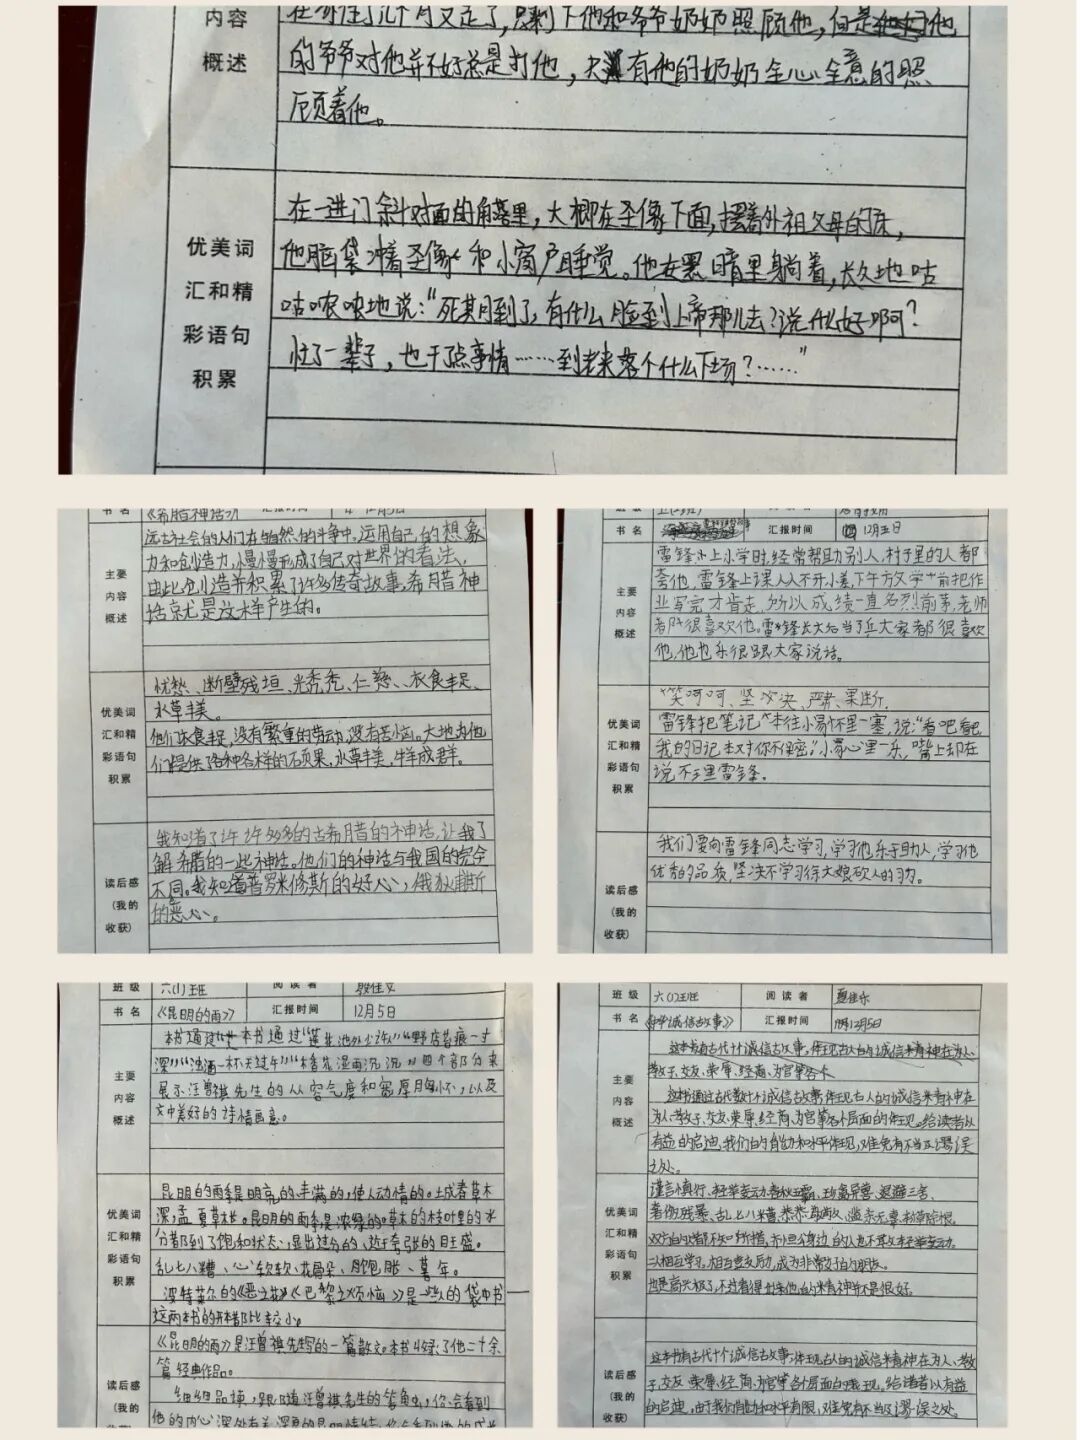 内容
概述
在家住了几个月又走了，只剩下他和爷爷奶奶照顾他，但是他
的爷爷对他并不好总是打他，只有他的奶奶全心全意的照
顾着他。
优美词
汇和精
彩语句
积累
在一进门斜对面的角落里，大柳在圣像下面，摆着外祖父母的床，
他脑袋冲着圣像和小窗户睡觉。他在黑暗里躺着，长久地咕
咕哝哝地说：“死期到了，有什么脸到上帝那儿去？说什么好啊？
忙了一辈子，也干了点事情……到老来落个什么下场？……”
书名
《希腊神话》
汇报时间
主要
内容
概述
远古社会的人们在与自然的斗争中，运用自己的想象
力和创造力，慢慢形成了自己对世界的看法，
由此创造并积累了许多传奇故事，希腊神
话就是这样产生的。
优美词
汇和精
彩语句
积累
忧愁、断壁残垣、光秃秃、仁慈、衣食丰足、
水草丰美。
他们衣食丰足，没有繁重的劳动，没有苦恼。大地为他
们提供了各种各样的硕果，水草丰美，牛羊成群。
读后感
(我的
收获)
我知道了许许多多的古希腊的神话，让我了
解希腊的一些神话。他们的神话与我国的完全
不同。我知道普罗米修斯的好心，俄
的恶心。
书名
汇报时间
12月5日
主要
内容
概述
雷锋小上小学时，经常帮助别人，村子里的人都
喜他，雷锋上课从不开小差，下午放学前把作
业写完才肯走，所以成绩一直名列前茅，老师
都很喜欢他。雷锋长大后当了兵大家都很喜欢
他，他也乐很跟大家说话。
优美词
汇和精
彩语句
积累
笑呵呵、坚决、严肃、果断、
雷锋把笔记本往小易怀里一塞，说：“看吧看吧
我的日记本对你不保密，”小易心里一乐，嘴上却在
说不理雷锋。
读后感
(我的
收获)
我们要向雷锋同志学习，学习他乐于助人，学习他
优秀的品质，坚决不学习徐大娘砍人的习为。
班级
六(1)班
阅读者
书名
《昆明的雨》
汇报时间
12月5日
主要
内容
概述
本书通过本书通过“莲生池外少许”“野店苔痕一寸
深”“浊酒一杯天过午”“木香花湿雨沉沉”四个部分来
展示汪曾祺先生的从容气度和宽厚胸怀，以及
文中美好的诗情画意。
优美词
汇和精
彩语句
积累
昆明的雨季是明亮的、丰满的，使人动情的。城春草木
深，孟夏草木长。昆明的雨季，是浓绿的。草木的枝叶里的水
分都到了饱和状态，显出过分的、近于夸张的旺盛。
乱七八糟、心软软、花骨朵、肥饱胀、暮年。
波特莱尔的《恶之花》《巴黎之烦恼》是一些人的袋中书——
这两本书的开本都比较小。
读后感
(我的
收获)
《昆明的雨》是汪曾祺先生写的一篇散文。本书收录了他二十余
篇经典作品。
细细品读，跟随汪曾祺先生的笔触，你会看到
班级
六(1)班
阅读者
夏佳乐
书名
诚信故事》
汇报时间
12月5日
主要
内容
概述
这本书有古代十个诚信古故事，体现古人的诚信精神在为人、
教子、交友、荣辱、经商、为官等各个
这书通过古代数十个诚信古故事，体现古人的诚信精神在
为人、教子、交友、荣辱、经商、为官等各个层面的体现。给读者以
有益的启迪，我们的能力和水平体现，难免有不当及谬误
之处。
优美词
汇和精
彩语句
积累
谨言慎行、轻举妄动、春秋五霸、珍禽异兽、退避三舍、
暑伤残暴、乱七八糟、恭恭敬敬、滥杀无辜、斩草除根。
读后感
(我的
收获)
这本书有古代十个诚信古故事，体现古人的诚信精神在为人、教
子、交友、荣辱、经商、为官等各个层面的体现，给读者以有益
的启迪，由于我们能力和水平有限，难免有不当及谬误之处。